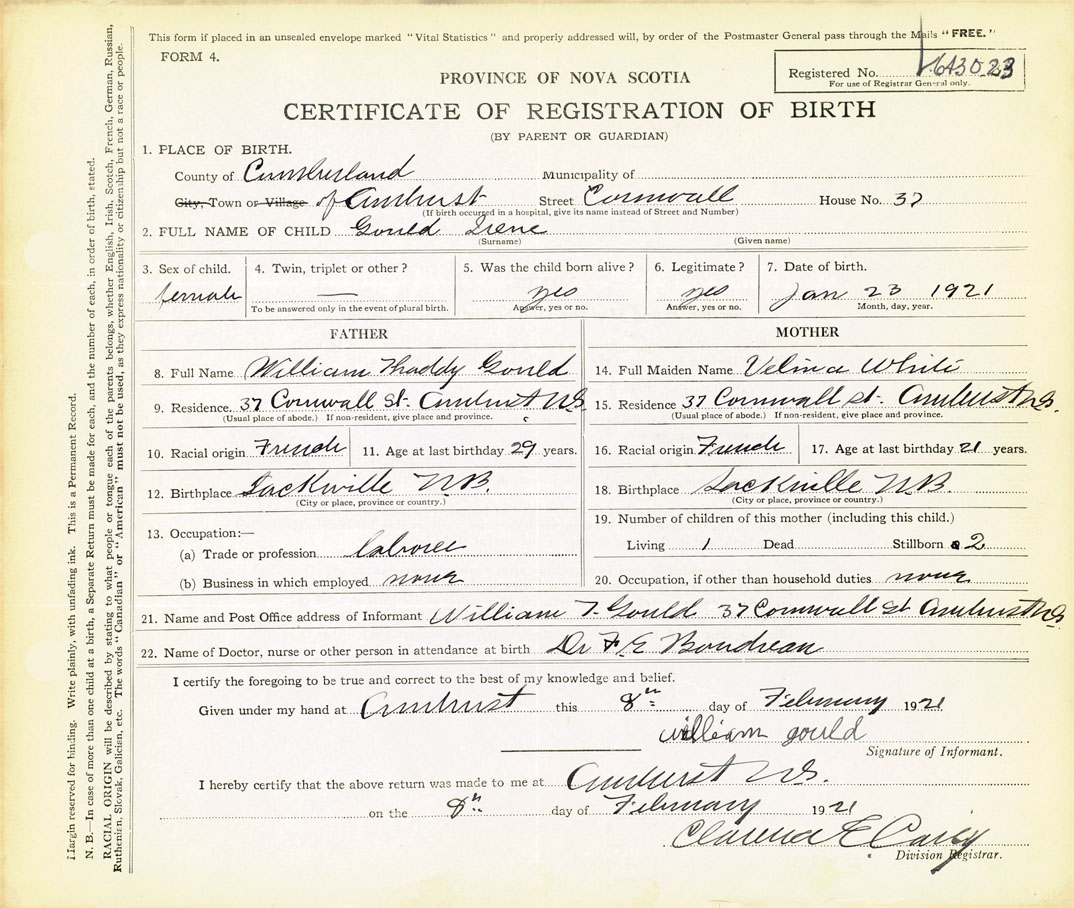 This form if placed in an unsealed envelope marked "Vital Statistics" and properly addressed will, by order of the Postmaster General pass through the Mails "FREE."
FORM 4.
Registered No. 643023
For use of Registrar General only.
PROVINCE OF NOVA SCOTIA
CERTIFICATE OF REGISTRATION OF BIRTH
(BY PARENT OR GUARDIAN)
1. PLACE OF BIRTH.
County of Cumberland Municipality of
City, Town or Village of Amherst Street Cornwall House No. 37
(If birth occurred in a hospital, give its name instead of Street and Number)
2. FULL NAME OF CHILD Gould Irene
(Surname) (Given name)
3. Sex of child. 4. Twin, triplet or other? 5. Was the child born alive? 6. Legitimate? 7. Date of birth.
female — yes yes Jan 23 1921
To be answered only in the event of plural birth. Answer, yes or no. Answer, yes or no. Month, day, year.
FATHER MOTHER
8. Full Name William Thaddy Gould 14. Full Maiden Name Velina White
9. Residence. 37 Cornwall St. Amherst N.S. 15. Residence 37 Cornwall st. Amherst N.S.
(Usual place of abode.) If non-resident, give place and province. (Usual place of abode.) If non-resident, give place and province.
10. Racial origin French 11. Age at last birthday 29 years. 16. Racial origin French 17. Age at last birthday 21 years.
12. Birthplace Sackville N.B. 18. Birthplace Sackville N.B.
(City or place, province or country.) (City or place, province or country.)
13. Occupation:— 19. Number of children of this mother (including this child.)
(a) Trade or profession laborer Living 1 Dead Stillborn 2
(b) Business in which employed none 20. Occupation, if other than household duties none
21. Name and Post Office address of Informant William T. Gould 37 Cornwall St Amherst N.S.
22. Name of Doctor, nurse or other person in attendance at birth Dr F. E Boudreau
I certify the foregoing to be true and correct to the best of my knowledge and belief.
Given under my hand at Amherst this 8th day of February 1921
william gould
Signature of Informant.
I hereby certify that the above return was made to me at Amherst N.S.
on the 8th day of February 1921
Clarence E.
Division Registrar.
Margin reserved for binding. Write plainly, with unfading ink. This is a Permanent Record.
N. B.—In case of more than one child at a birth, a Separate Return must be made for each, and the number of each, in order of birth, stated.
RACIAL ORIGIN will be described by stating to what people or tongue each of the parents belongs, whether English, Irish, Scotch, French, German, Russian,
Ruthenian, Slovak, Galician, etc. The words "Canadian" or "American" must not be used, as they express nationality or citizenship but not a race or people.